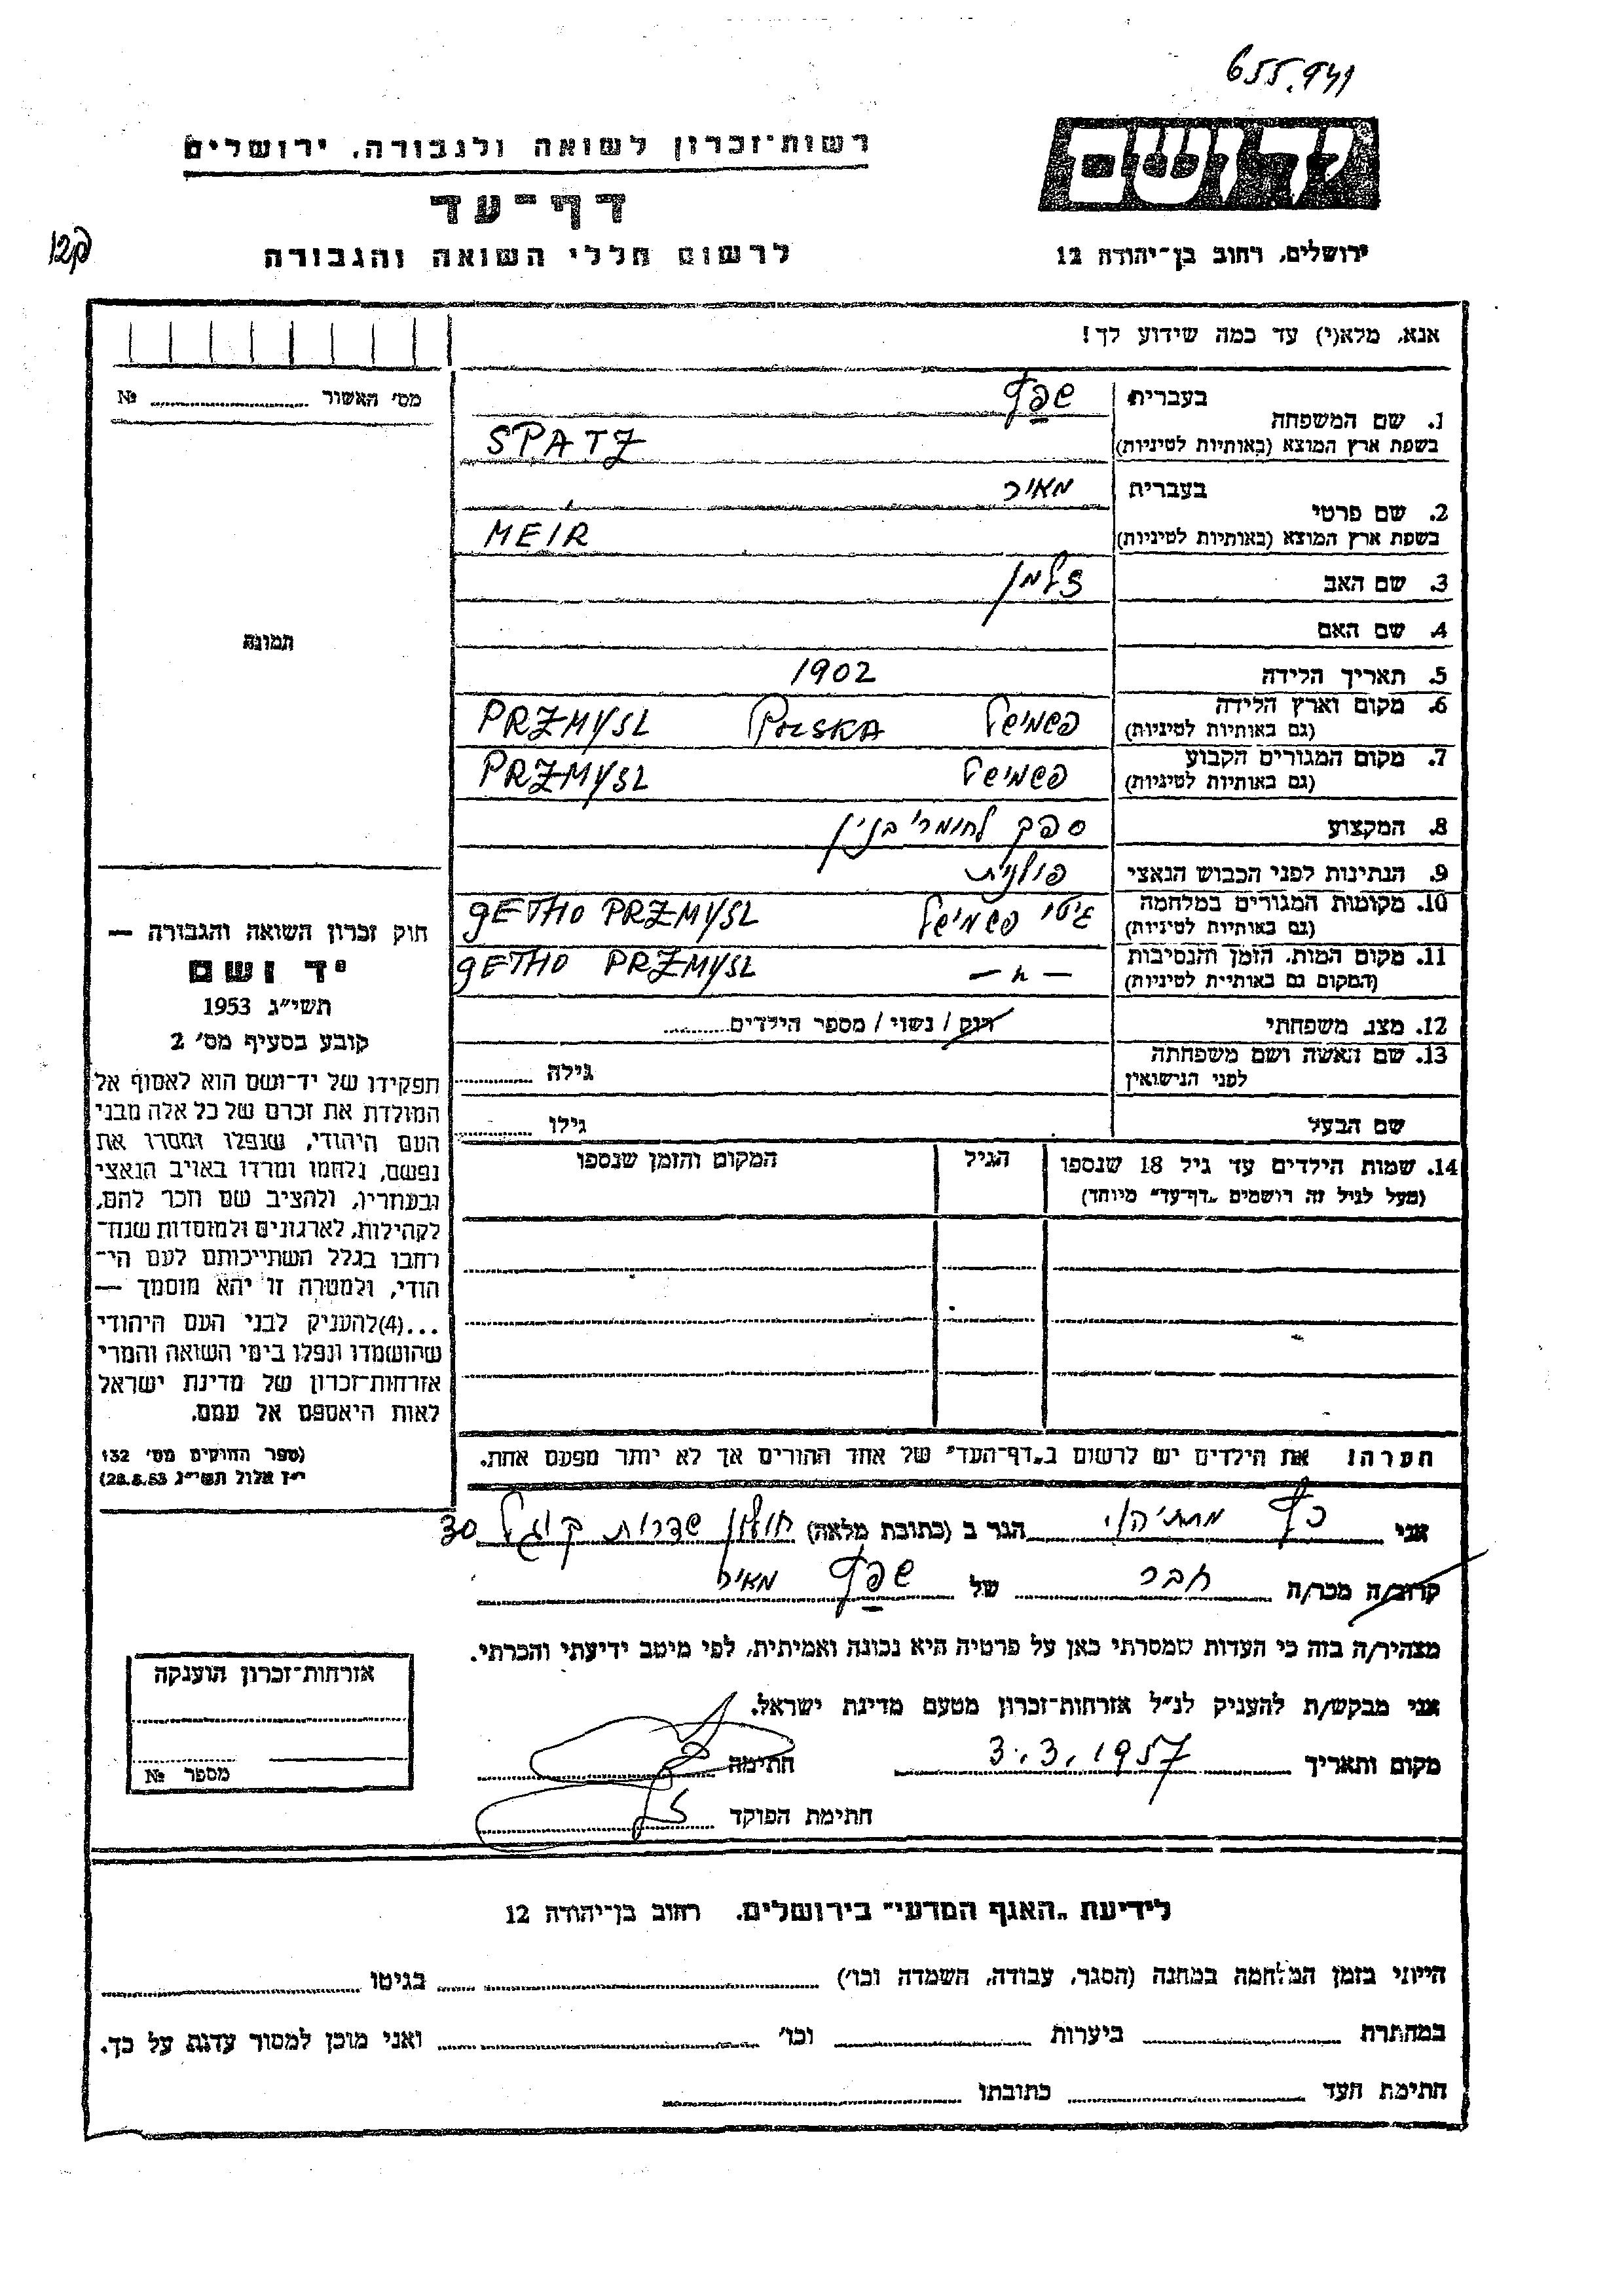 655.941
רשות-זכרון לשואה ולגבורה, ירושלים
יד ושם
דף-עד
לרשום חללי השואה והגבורה
ירושלים, רחוב בן-יהודה 12
אנא, מלא(י) עד כמה שידוע לך!
מס' האשור № 
1. שם המשפחה
בעברית שפץ
בשפת ארץ המוצא (באותיות לטיניות) SPATZ
2. שם פרטי
בעברית מאיר
בשפת ארץ המוצא (באותיות לטיניות) MEIR
3. שם האב זלמן
4. שם האם
תמונה
5. תאריך הלידה 1902
6. מקום וארץ הלידה פשמישל POLSKA PRZMYSL
(גם באותיות לטיניות)
7. מקום המגורים הקבוע פשמישל PRZMYSL
(גם באותיות לטיניות)
8. המקצוע ספק לחומרי בנין
9. הנתינות לפני הכבוש הנאצי פולנית
10. מקומות המגורים במלחמה גיטו פשמישל GETHO PRZMYSL
(גם באותיות לטיניות)
11. מקום המות, הזמן והנסיבות — " — GETHO PRZMYSL
(המקום גם באותיות לטיניות)
12. מצב משפחתי רווק / נשוי / מספר הילדים
13. שם האשה ושם משפחתה
לפני הנישואין גילה
שם הבעל גילו
14. שמות הילדים עד גיל 18 שנספו הגיל המקום והזמן שנספו
(מעל לגיל זה רושמים "דף-עד" מיוחד)
הערה: את הילדים יש לרשום ב"דף-העד" של אחד ההורים אך לא יותר מפעם אחת.
חוק זכרון השואה והגבורה —
יד ושם
תשי"ג 1953
קובע בסעיף מס' 2
תפקידו של יד-ושם הוא לאסוף אל
המולדת את זכרם של כל אלה מבני
העם היהודי, שנפלו ומסרו את
נפשם, נלחמו ומרדו באויב הנאצי
ובעוזריו, ולהציב שם וזכר להם,
לקהילות, לארגונים ולמוסדות שנח-
רבו בגלל השתייכותם לעם הי-
הודי, ולמטרה זו יהא מוסמך —
...(4) להעניק לבני העם היהודי
שהושמדו ונפלו בימי השואה והמרי
אזרחות-זכרון של מדינת ישראל
לאות היאספם אל עמם.
(ספר החוקים מס' 132
י"ז אלול תשי"ג 28.8.53)
אני כץ מתתיהו הגר ב (כתובת מלאה) חולון שדרות קוגל 30
קרוב/ה מכר/ה חבר של שפץ מאיר
מצהיר/ה בזה כי העדות שמסרתי כאן על פרטיה היא נכונה ואמיתית, לפי מיטב ידיעתי והכרתי.
אני מבקש/ת להעניק לנ"ל אזרחות-זכרון מטעם מדינת ישראל.
מקום ותאריך 3.3.1957 חתימה
חתימת הפוקד
אזרחות-זכרון הוענקה
מספר №
לידיעת "האגף המדעי" בירושלים, רחוב בן-יהודה 12
הייתי בזמן המלחמה במחנה (הסגר, עבודה, השמדה וכו') בגיטו
במחתרת ביערות וכו' ואני מוכן למסור עדות על כך.
חתימת העד כתובתו